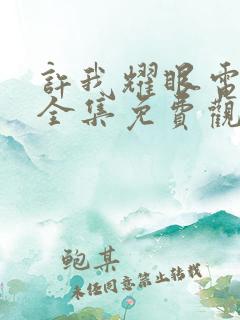 許我耀眼電
全集免費觀
鲍某
未经同意禁止转载